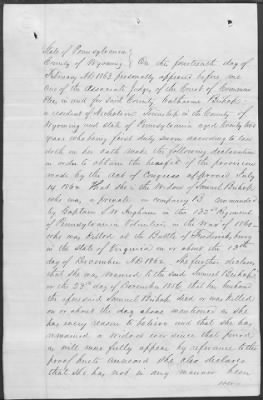 State of Pennsylvania
County of Wyoming On the fourteenth day of
February AD 1863 personally appeared before me
one of the Associate Judges of the Court of Common
Pleas in and for said County Catharine Bishop
a resident of Nicholson Township in the County of
Wyoming and state of Pennsylvania aged twenty
years who being first duly sworn according to law
doth on her oath make the following declaration
in order to obtain the benefit of the provision
made by the act of Congress approved July
14 1862 That she is the Widow of Samuel Bishop
who was a private in company B commanded
by Captain in the 132nd Regiment
of Pennsylvania Volunteers in the War of 1861
who was killed at the Battle of Fredericksburg
in the State of Virginia on or about the 13th
day of December AD 1862 She further declares
that she was married to the said Samuel Bishop
on the day of December 1856 that her husband
the aforesaid Samuel Bishop died or was killed
on or about the day above mentioned as she
has every reason to believe and that she has
remained a widow ever since that period
as will more fully appear by reference to the
proof hereto annexed She also declares
that she has not in any manner been